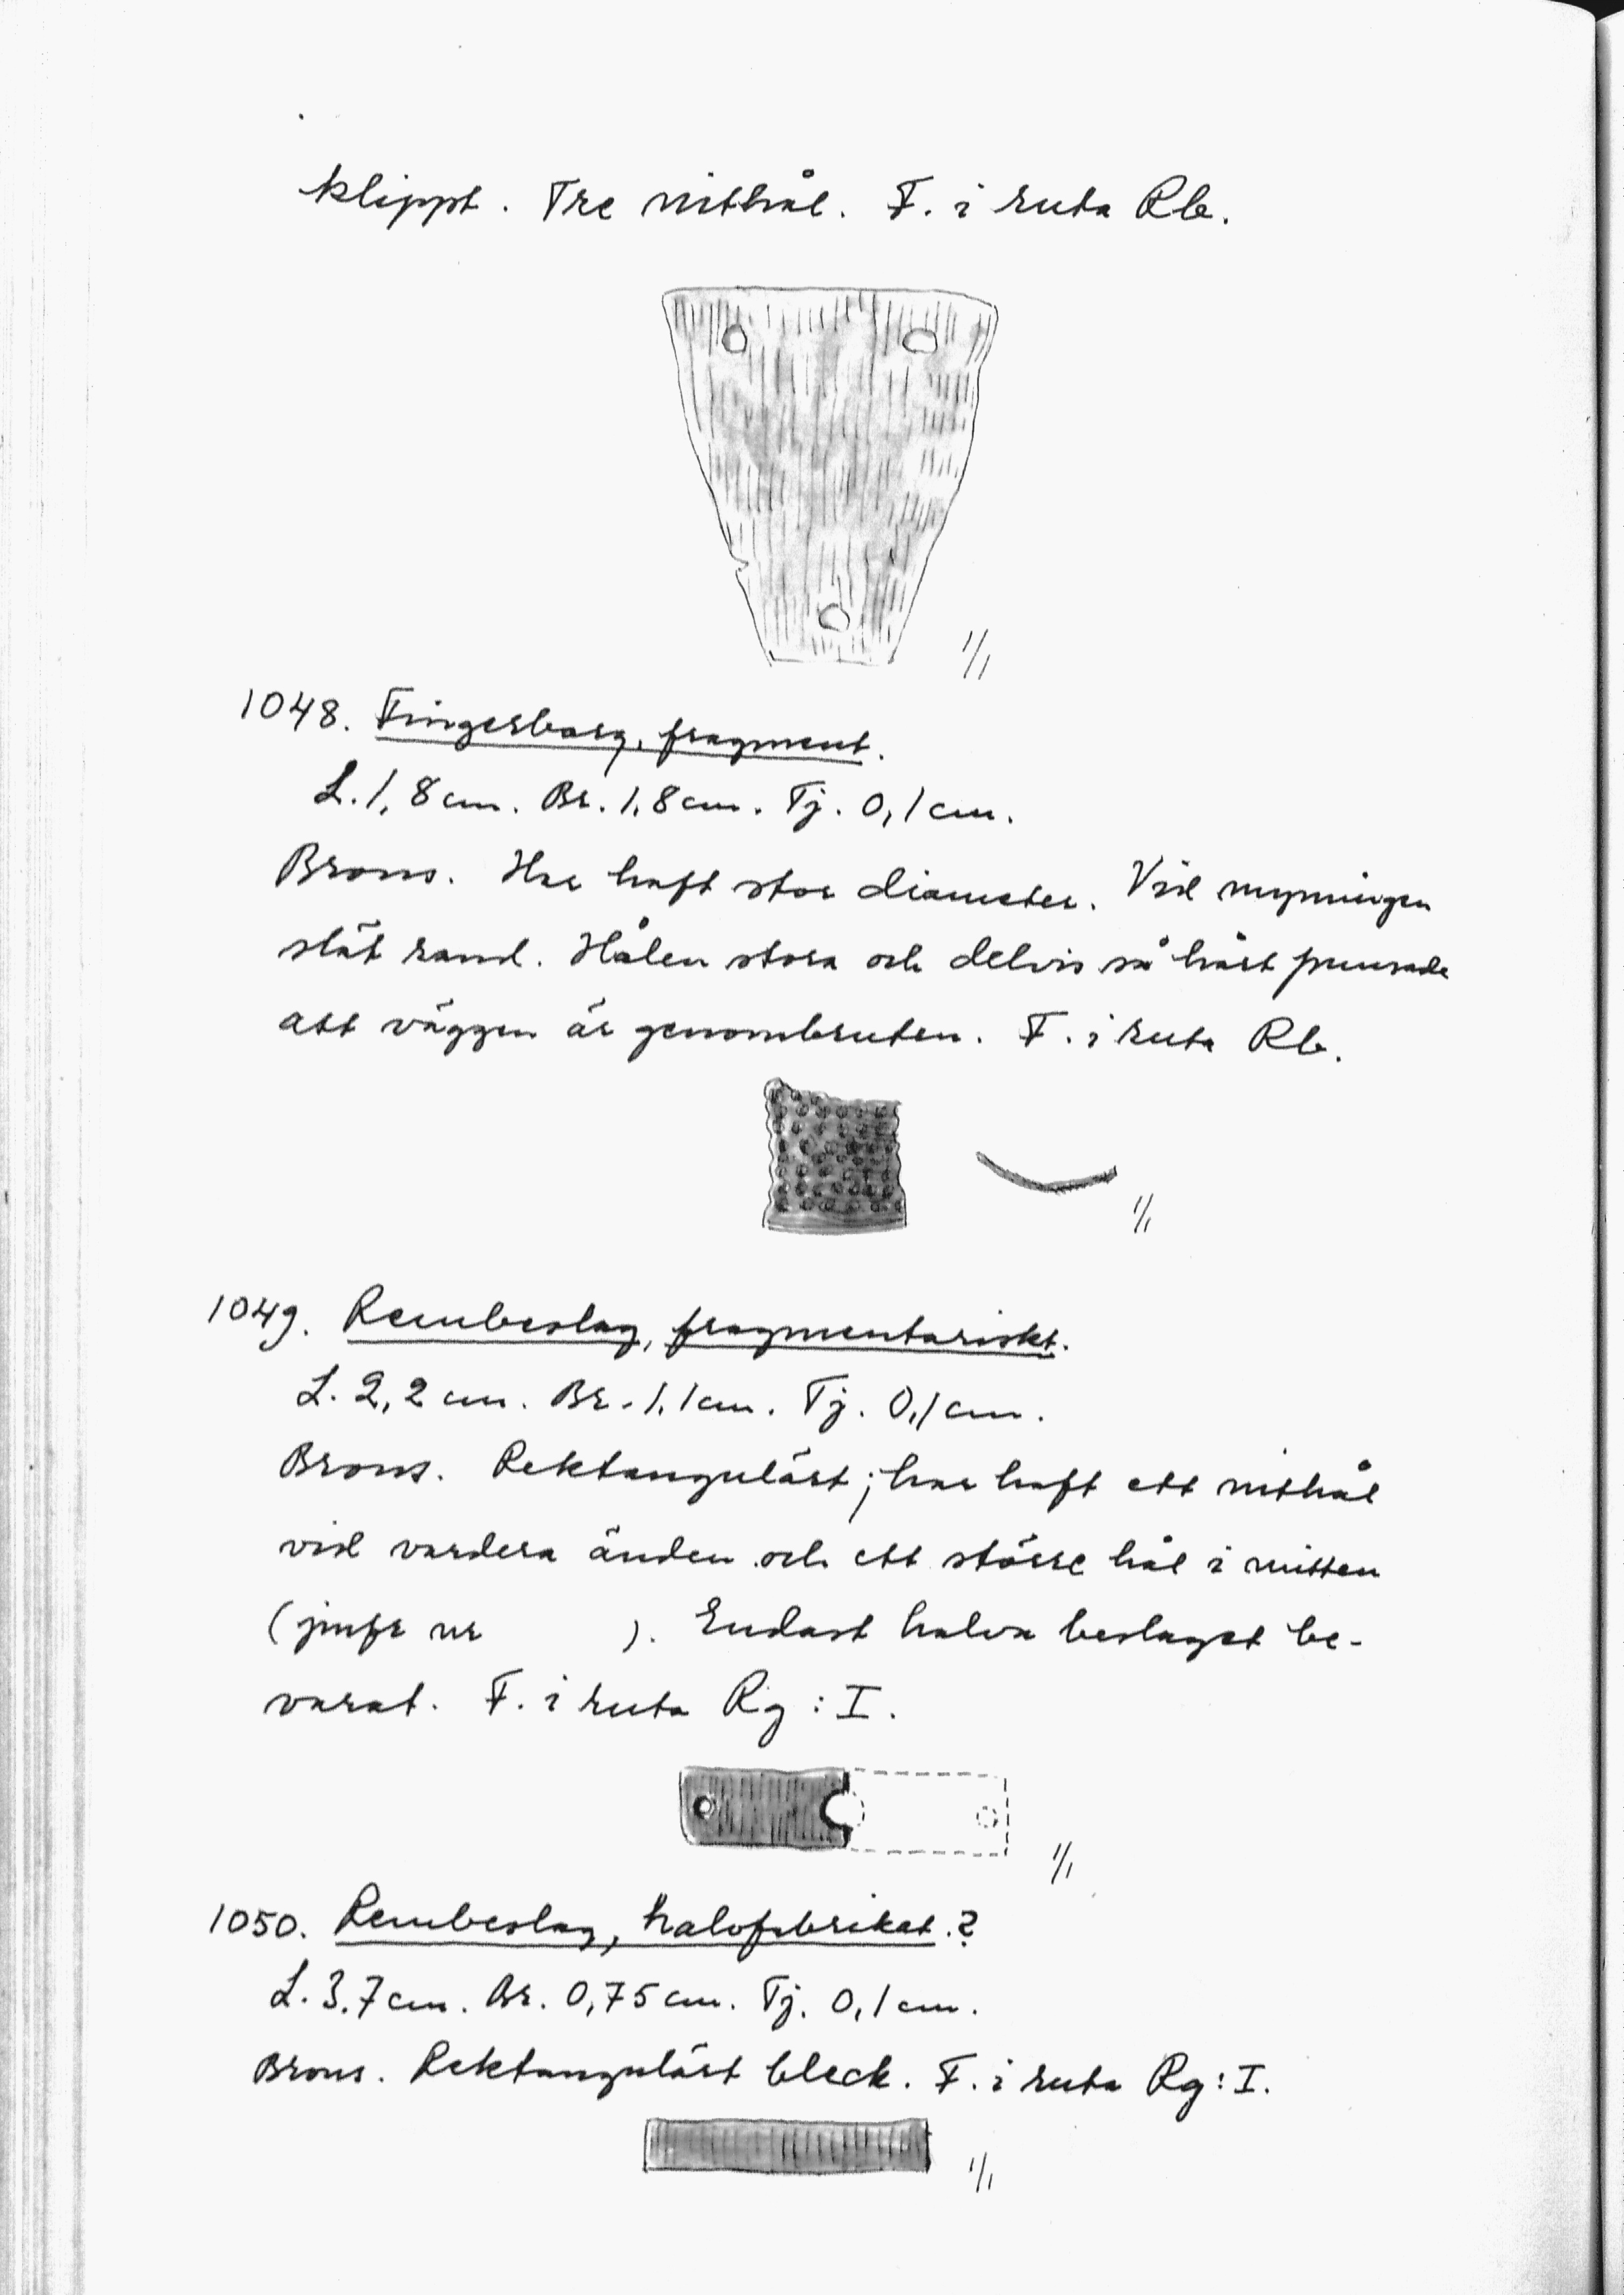 klippt. Tre nithål. F. i ruta Rb.
1/1
1048. Fingerborg, fragment.
L. 1,8 cm. Br. 1,8 cm. Tj. 0,1 cm.
Brons. Har haft stor diameter. Vid mynningen
slät rand. Hålen stora och delvis så hårt punsade
att väggen är genombruten. F. i ruta Rb.
1/1
1049. Rembeslag, fragmentariskt.
L. 2,2 cm. Br. 1,1 cm. Tj. 0,1 cm.
Brons. Rektangulärt; har haft ett nithål
vid vardera änden och ett större hål i mitten
(jmfr nr ). Endast halva beslaget be-
varat. F. i ruta Rg : I.
1/1
1050. Rembeslag, halvfabrikat.?
L. 3,7 cm. Br. 0,75 cm. Tj. 0,1 cm.
Brons. Rektangulärt bleck. F. i ruta Rg : I.
1/1